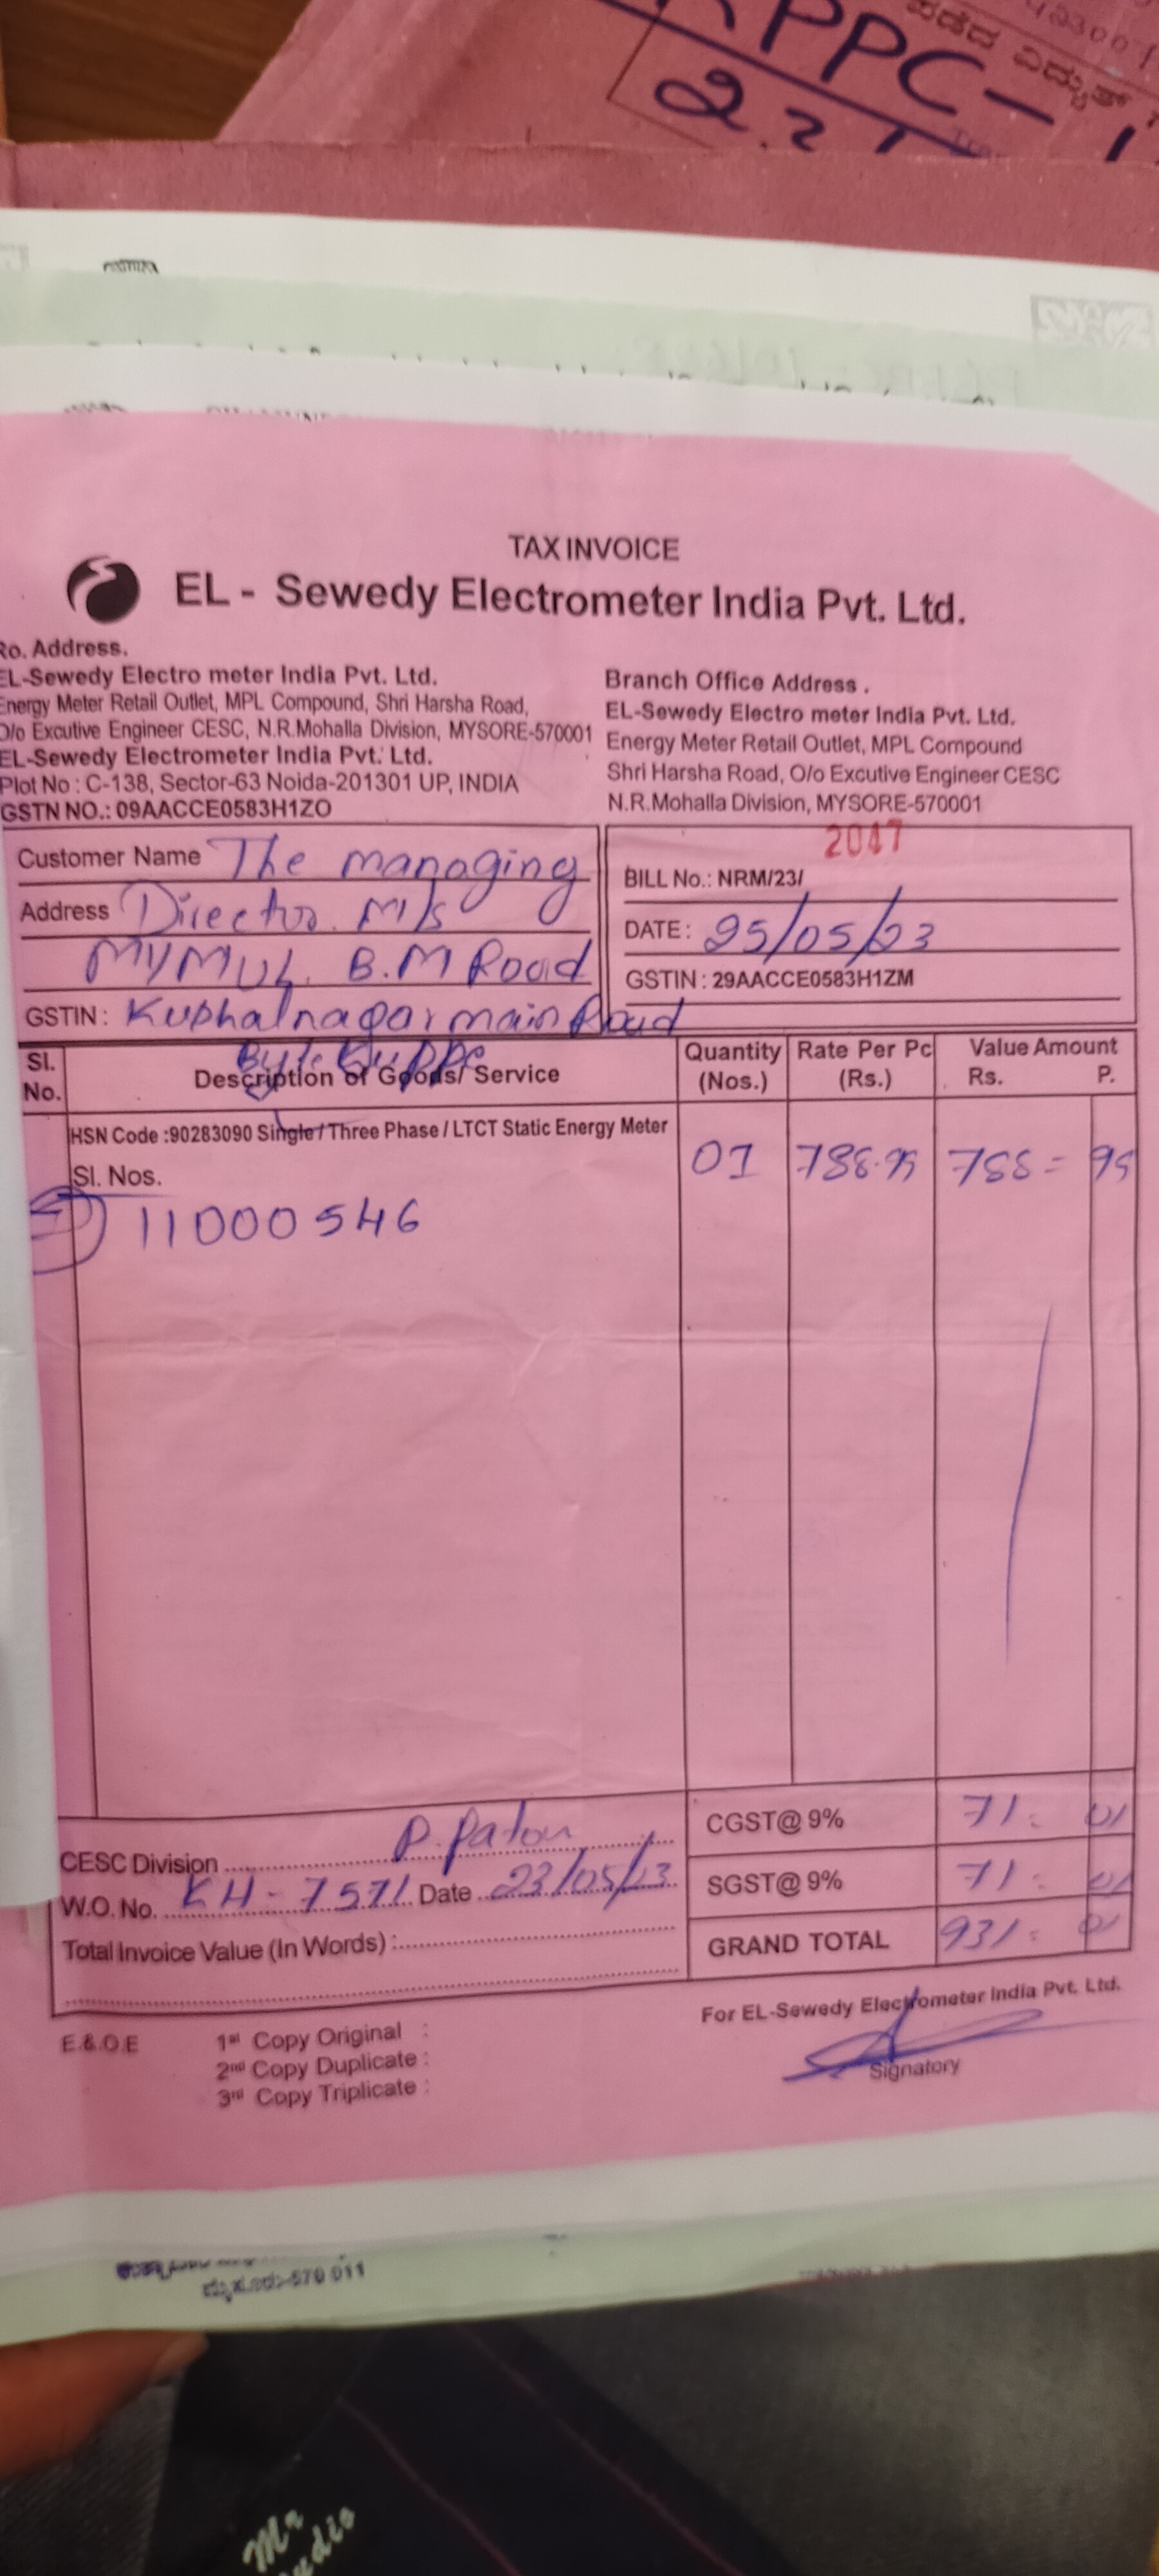 RPPC-1
2.21
ಪಡೆದ ವಿದ್ಯುತ್
TAX INVOICE
EL - Sewedy Electrometer India Pvt. Ltd.
Ro. Address.
EL-Sewedy Electro meter India Pvt. Ltd.
Energy Meter Retail Outlet, MPL Compound, Shri Harsha Road,
O/o Excutive Engineer CESC, N.R.Mohalla Division, MYSORE-570001
EL-Sewedy Electrometer India Pvt. Ltd.
Plot No : C-138, Sector-63 Noida-201301 UP, INDIA
GSTN NO.: 09AACCE0583H1ZO
Branch Office Address .
EL-Sewedy Electro meter India Pvt. Ltd.
Energy Meter Retail Outlet, MPL Compound
Shri Harsha Road, O/o Excutive Engineer CESC
N.R.Mohalla Division, MYSORE-570001
Customer Name The managing
Address Director M/s
MYMUL. B.M Road
GSTIN : Kushalnagar main Road
Bylakuppe
2047
BILL No.: NRM/23/
DATE : 25/05/23
GSTIN : 29AACCE0583H1ZM
Sl. No. Description of Goods/ Service Quantity (Nos.) Rate Per Pc (Rs.) Value Amount Rs. P.
HSN Code :90283090 Single / Three Phase / LTCT Static Energy Meter
Sl. Nos. 01 788.95 788 = 95
11000546
CESC Division
W.O. No. KH - 7571 Date 23/05/23
Total Invoice Value (In Words) :
CGST@ 9% 71 . 01
SGST@ 9% 71 . 01
GRAND TOTAL 931 . 01
For EL-Sewedy Electrometer India Pvt. Ltd.
Signatory
E.&.O.E
1st Copy Original :
2nd Copy Duplicate :
3rd Copy Triplicate :
ಮೈಸೂರು-570 011
Mr